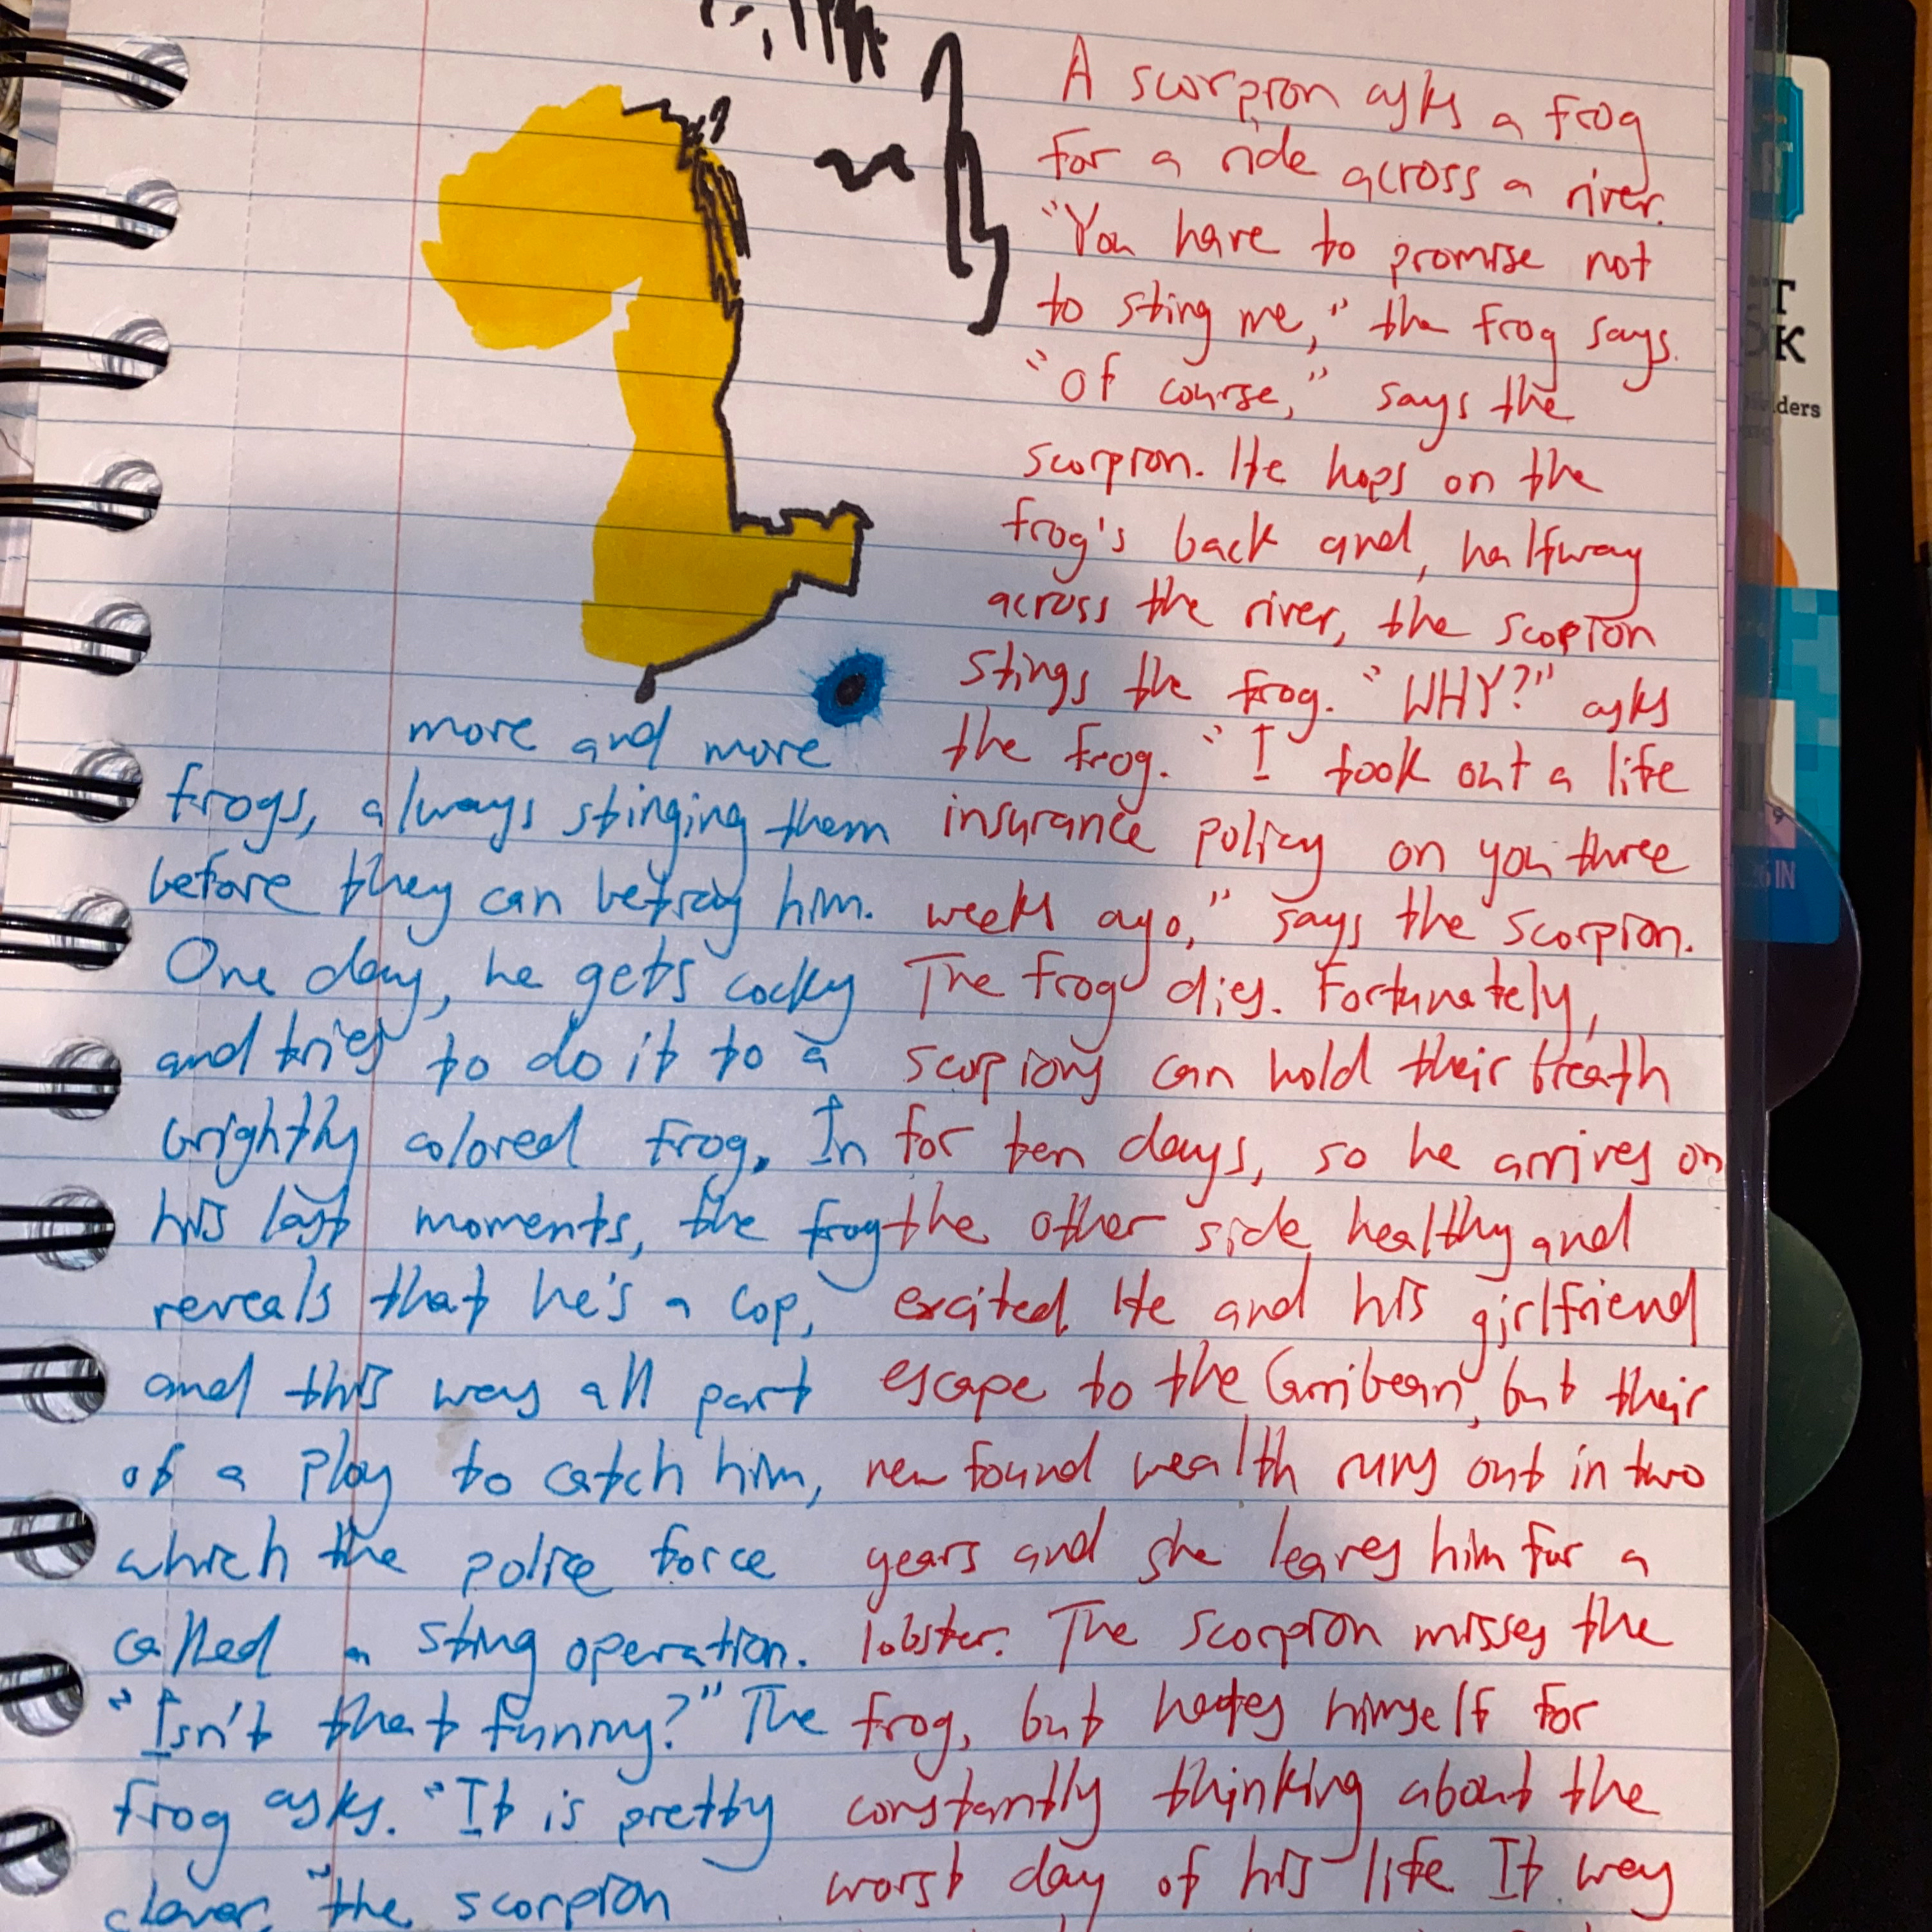 A scorpion asks a frog
for a ride across a river.
"You have to promise not
to sting me," the frog says.
"Of course," says the
scorpion. He hops on the
frog's back and, halfway
across the river, the scopion
stings the frog. "WHY?" asks
the frog. "I took out a life
insurance policy on you three
weeks ago," says the scorpion.
The frog dies. Fortunately,
scorpions can hold their breath
for ten days, so he arrives on
the other side healthy and
excited. He and his girlfriend
escape to the Carribean, but their
new found wealth runs out in two
years and she leaves him for a
lobster. The scorpion misses the
frog, but hates himself for
constantly thinking about the
worst day of his life. It was
more and more
frogs, always stinging them
before they can betray him.
One day, he gets cocky
and tries to do it to a
brightly colored frog. In
his last moments, the frog
reveals that he's a cop,
and this was all part
of a play to catch him,
which the police force
called a sting operation.
"Isn't that funny?" The
frog asks. "It is pretty
clever," the scorpion
T
K
ders
IN